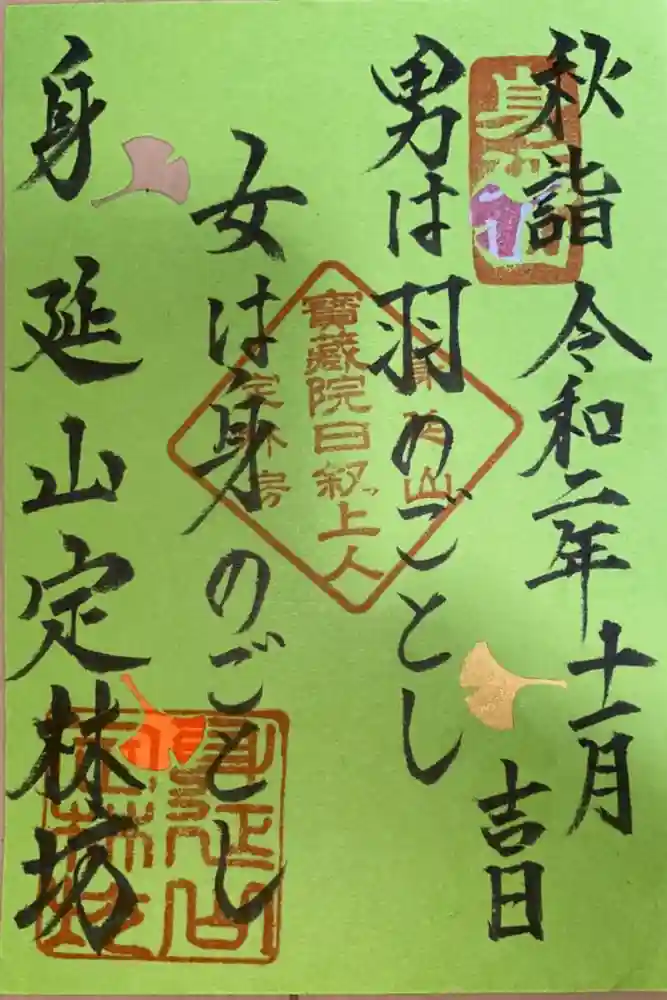 秋詣 令和二年十一月
吉日
男は羽のごとし
女は身のごとし
身延山定林坊
身延山
寳藏院日叙上人
定林房
身延山
定林坊